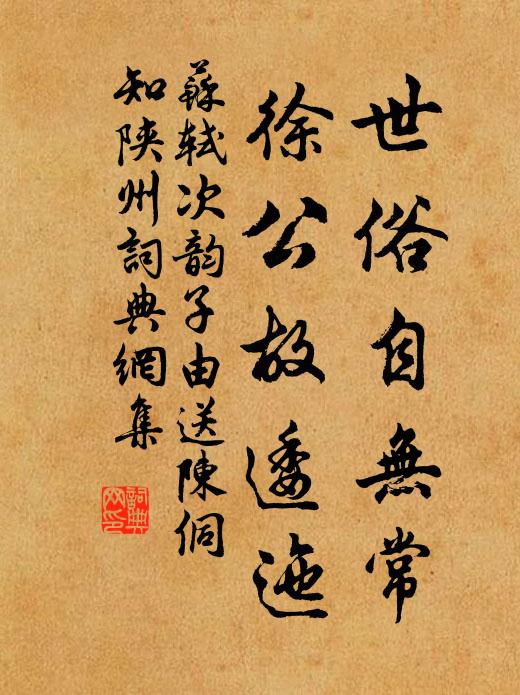 世俗自無常
徐公故逶迤
蘇軾次韵子由送陳侗
知陝州詞典網集
詞典网印